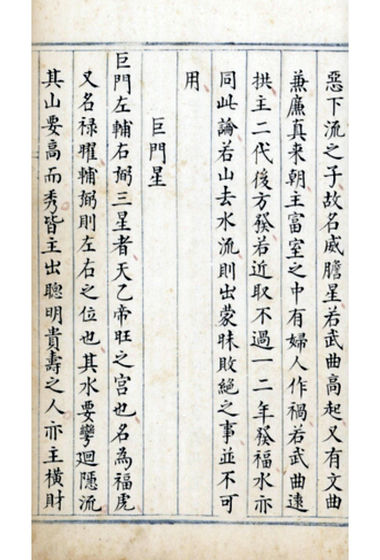 惡下流之子故名威膽星若武曲高起又有文曲
兼廉真来朝主富室之中有婦人作禍若武曲遠
拱主二代後方發若近取不過一二年發福水亦
同此論若山去水流則出蒙昧敗絶之事並不可
用
巨門星
巨門左輔右弼三星者天乙帝旺之宮也名為福虎
又名禄曜輔弼則左右之位也其水要彎迴隱流
其山要高而秀皆主出聰明貴壽之人亦主橫財